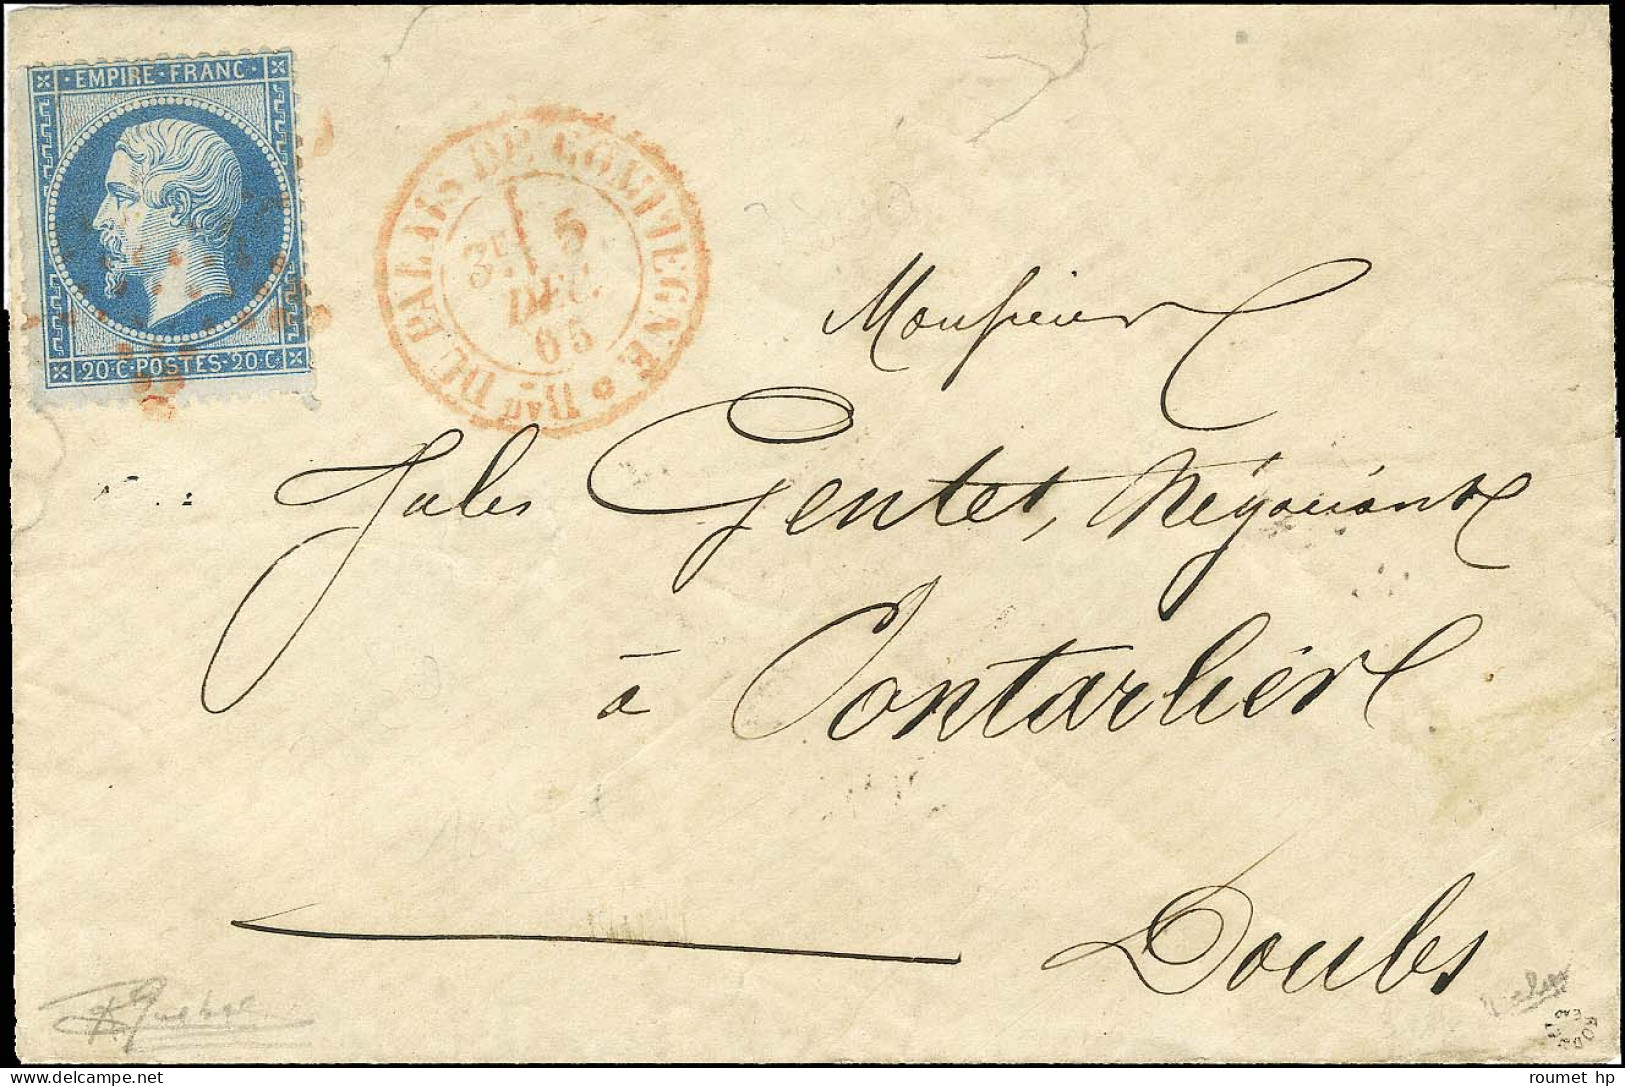 EMPIRE · FRANC
20·C·POSTES·20·C
Bau DU PALAIS DE COMPIEGNE
3E 5
DEC.
65
Monsieur
Jules Gentet, Négociant
à Pontarlier
Doubs
roumet hp